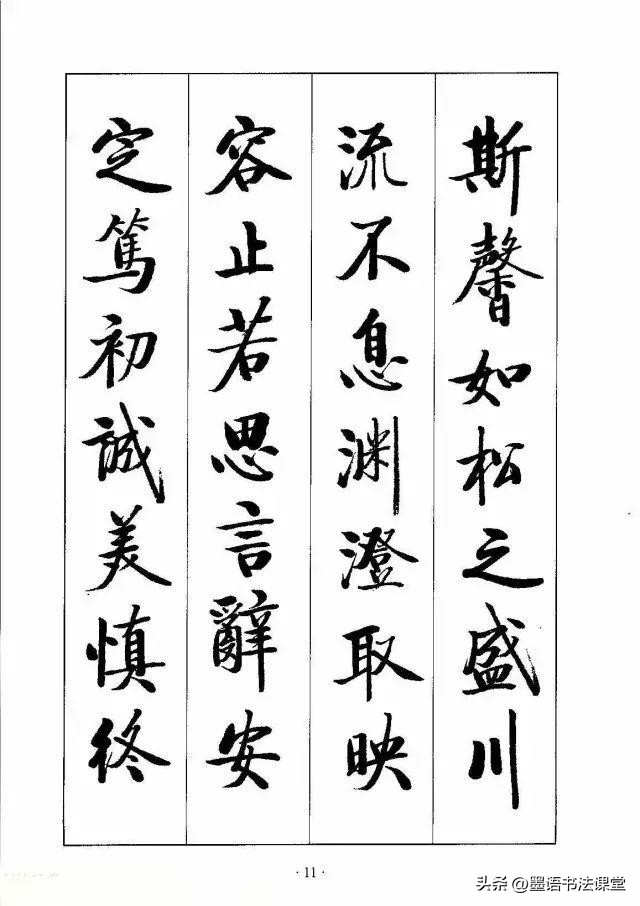 斯馨如松之盛川
流不息渊澄取映
容止若思言辭安
定篤初誠美慎終
·11·
头条@墨语书法课堂